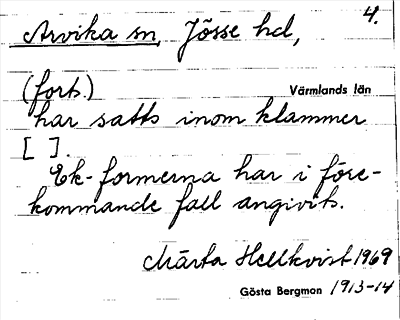 4.
Arvika sn, Jösse hd,
(forts.) Värmlands län
har satts inom klammer
[ ].
Ek-formerna har i före-
kommande fall angivits.
Märta Hellkvist 1969
Gösta Bergman 1913-14